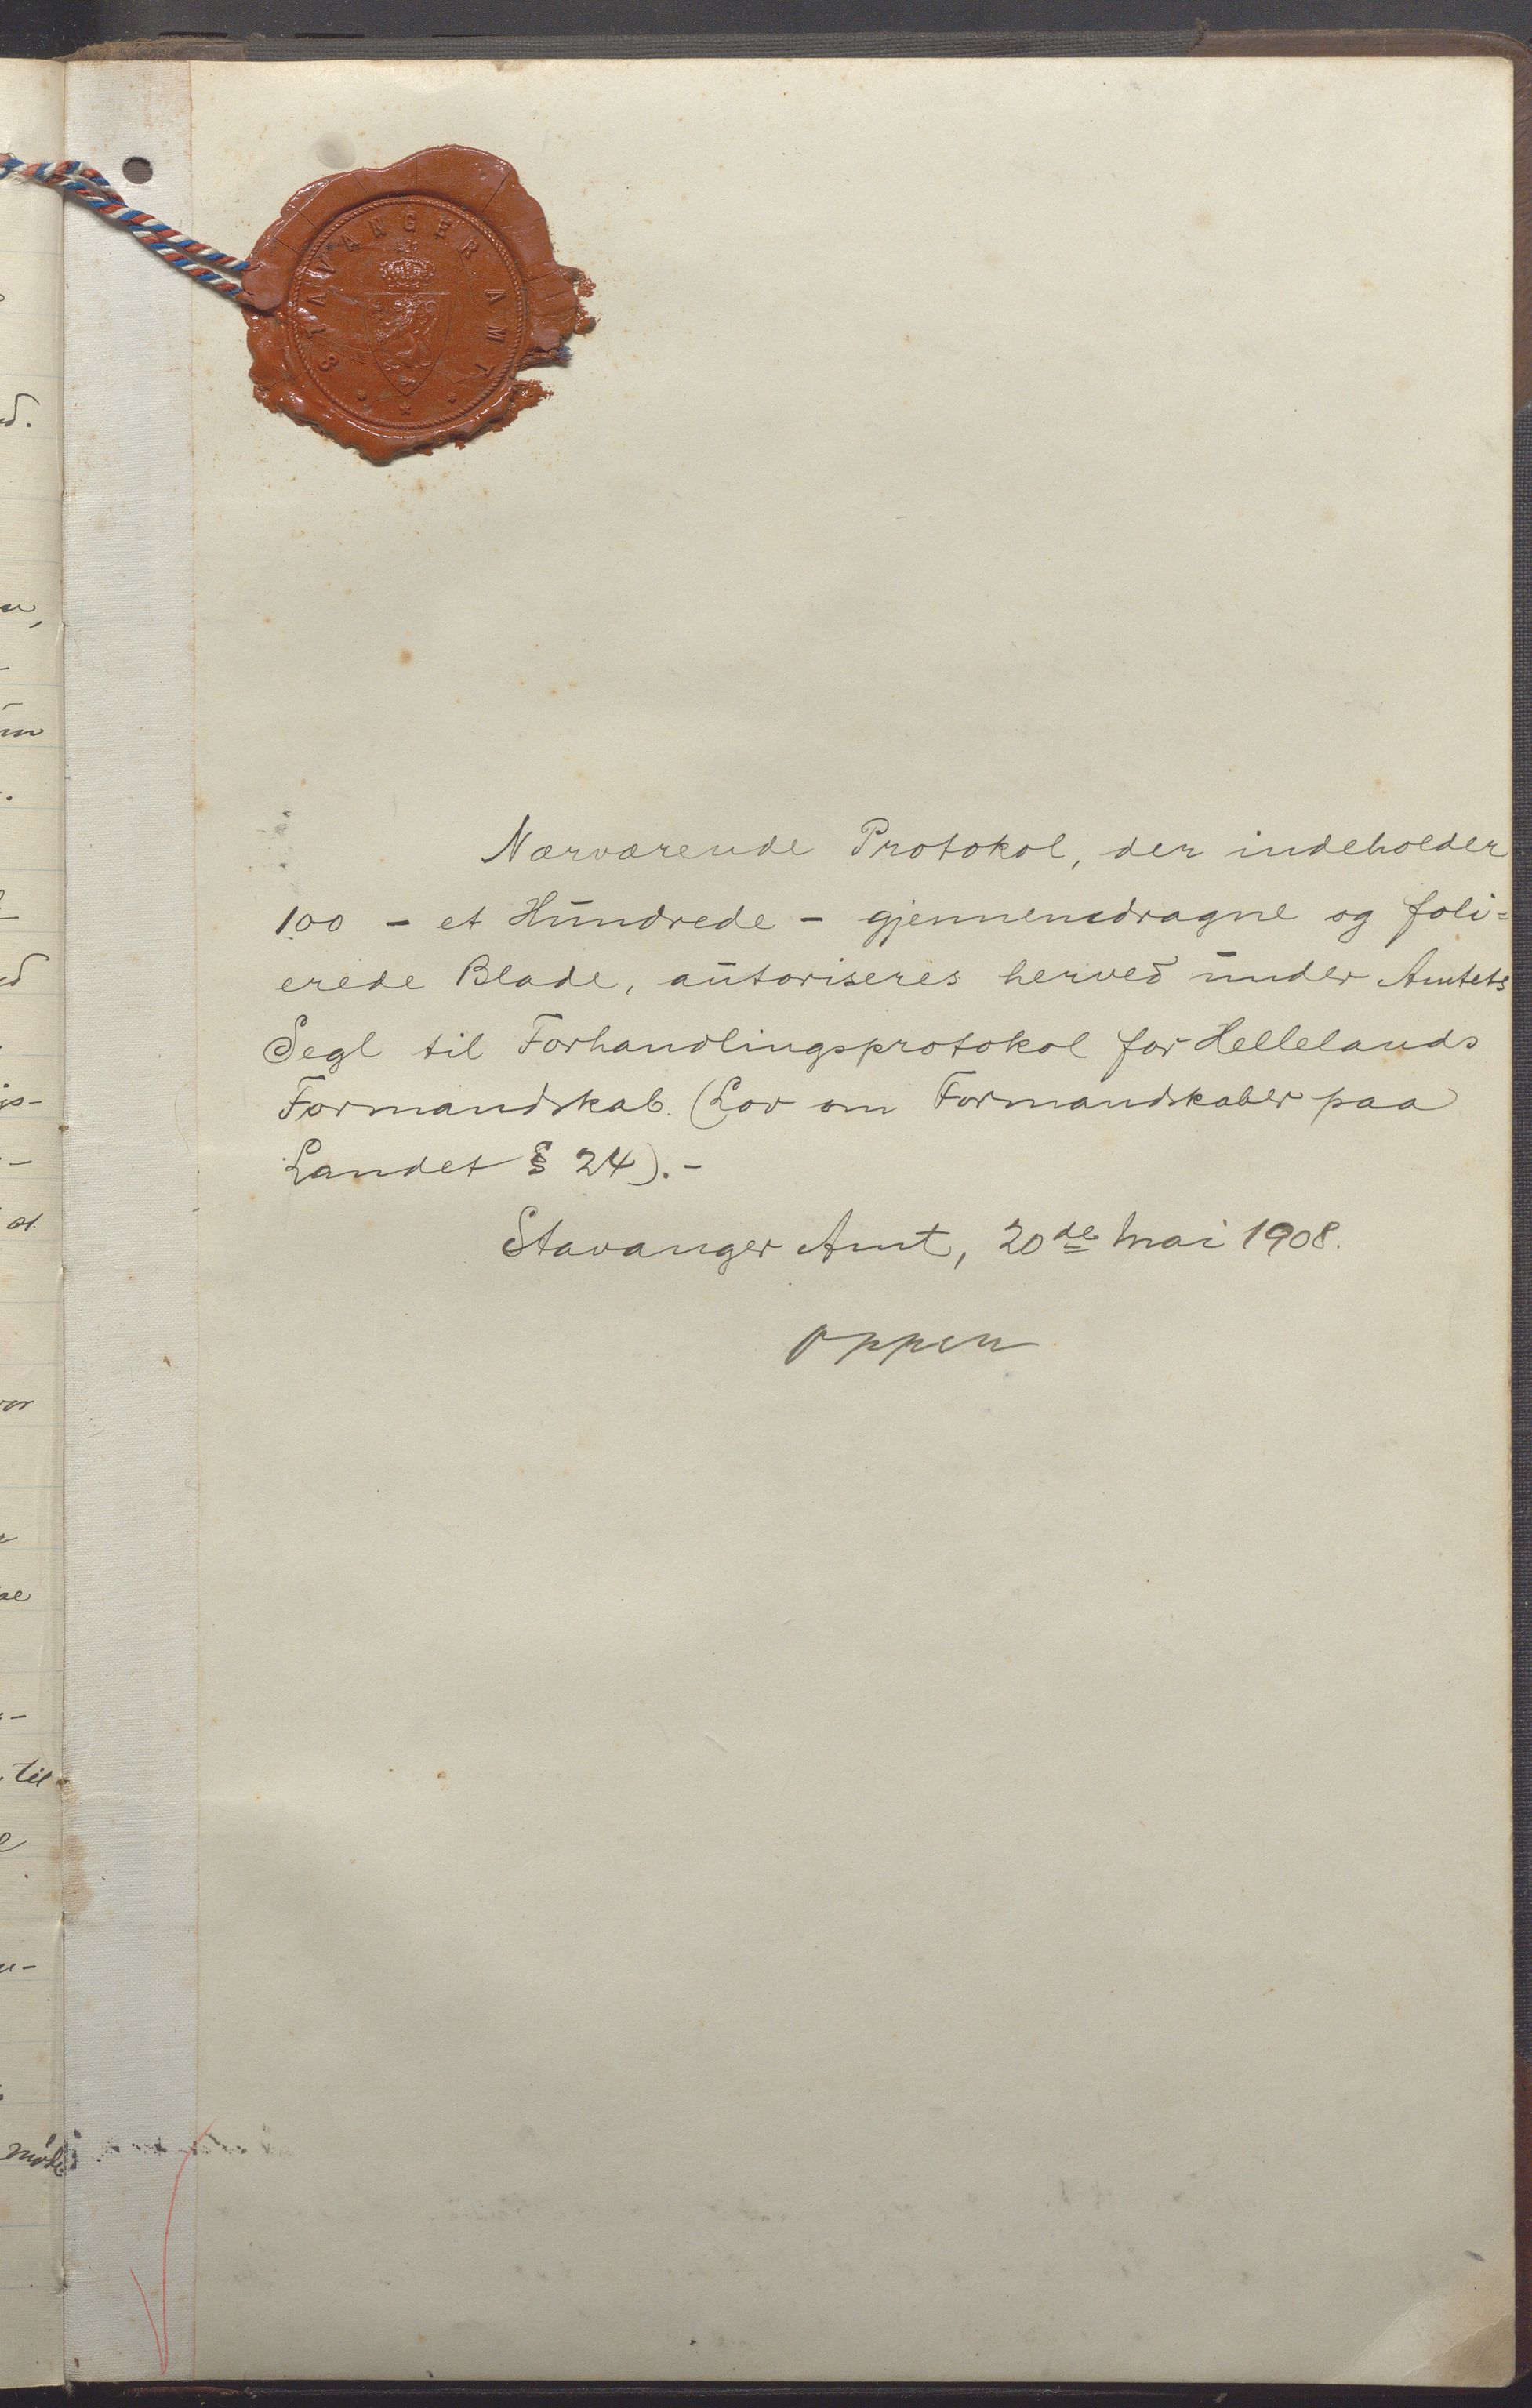 STAVANGER AMT
Nærværende Protokol, der indeholder
100 - et Hundrede - gjennemdragne og foli=
erede Blade, autoriseres herved under Amtets
Segl til Forhandlingsprotokol for Hellelands
Formandskab. (Lov om Formandskaber paa
Landet § 24).-
Stavanger Amt, 20de Mai 1908.
Oppen
til
møde